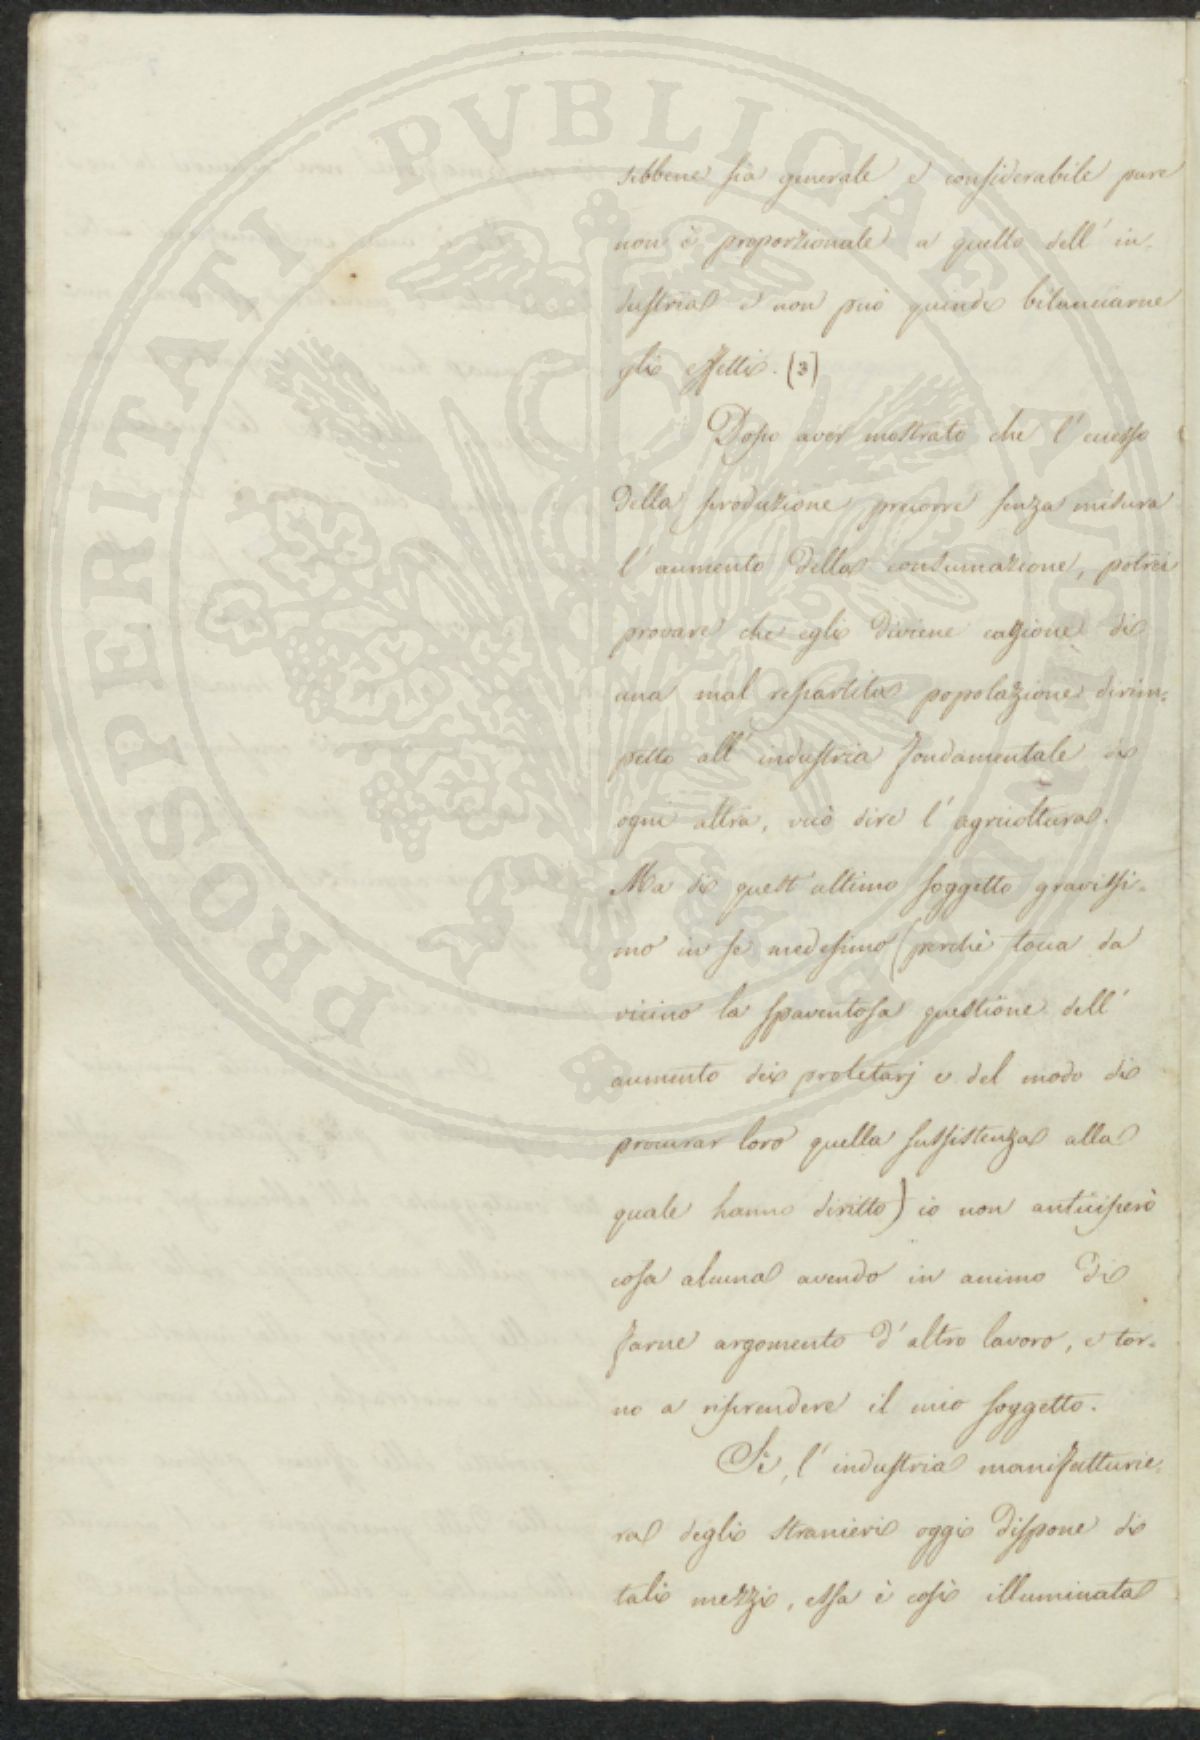 PROSPERITATI PVBLICAE AVGENDAE
sebbene sia generale e considerabile pure
non è proporzionale a quello dell' in-
dustria e non può quindi bilanciarne
gli effetti. (3)
Dopo aver mostrato che l' eccesso
della produzione precorre senza misura
l' aumento della consumazione, potrei
provare che egli diviene cagione di
una mal repartita popolazione dirim-
petto all' industria fondamentale di
ogni altra, vuò dire l' agricoltura.
Ma di quest' ultimo soggetto gravissi-
mo in se medesimo (perchè tocca da
vicino la spaventosa questione dell'
aumento dei proletarj e del modo di
procurar loro quella sussistenza alla
quale hanno diritto) io non anticiperò
cosa alcuna avendo in animo di
farne argomento d' altro lavoro, e tor-
no a riprendere il mio soggetto.
Si, l' industria manifatturie-
ra degli stranieri oggi dispone di
tali mezzi, essa è così illuminata